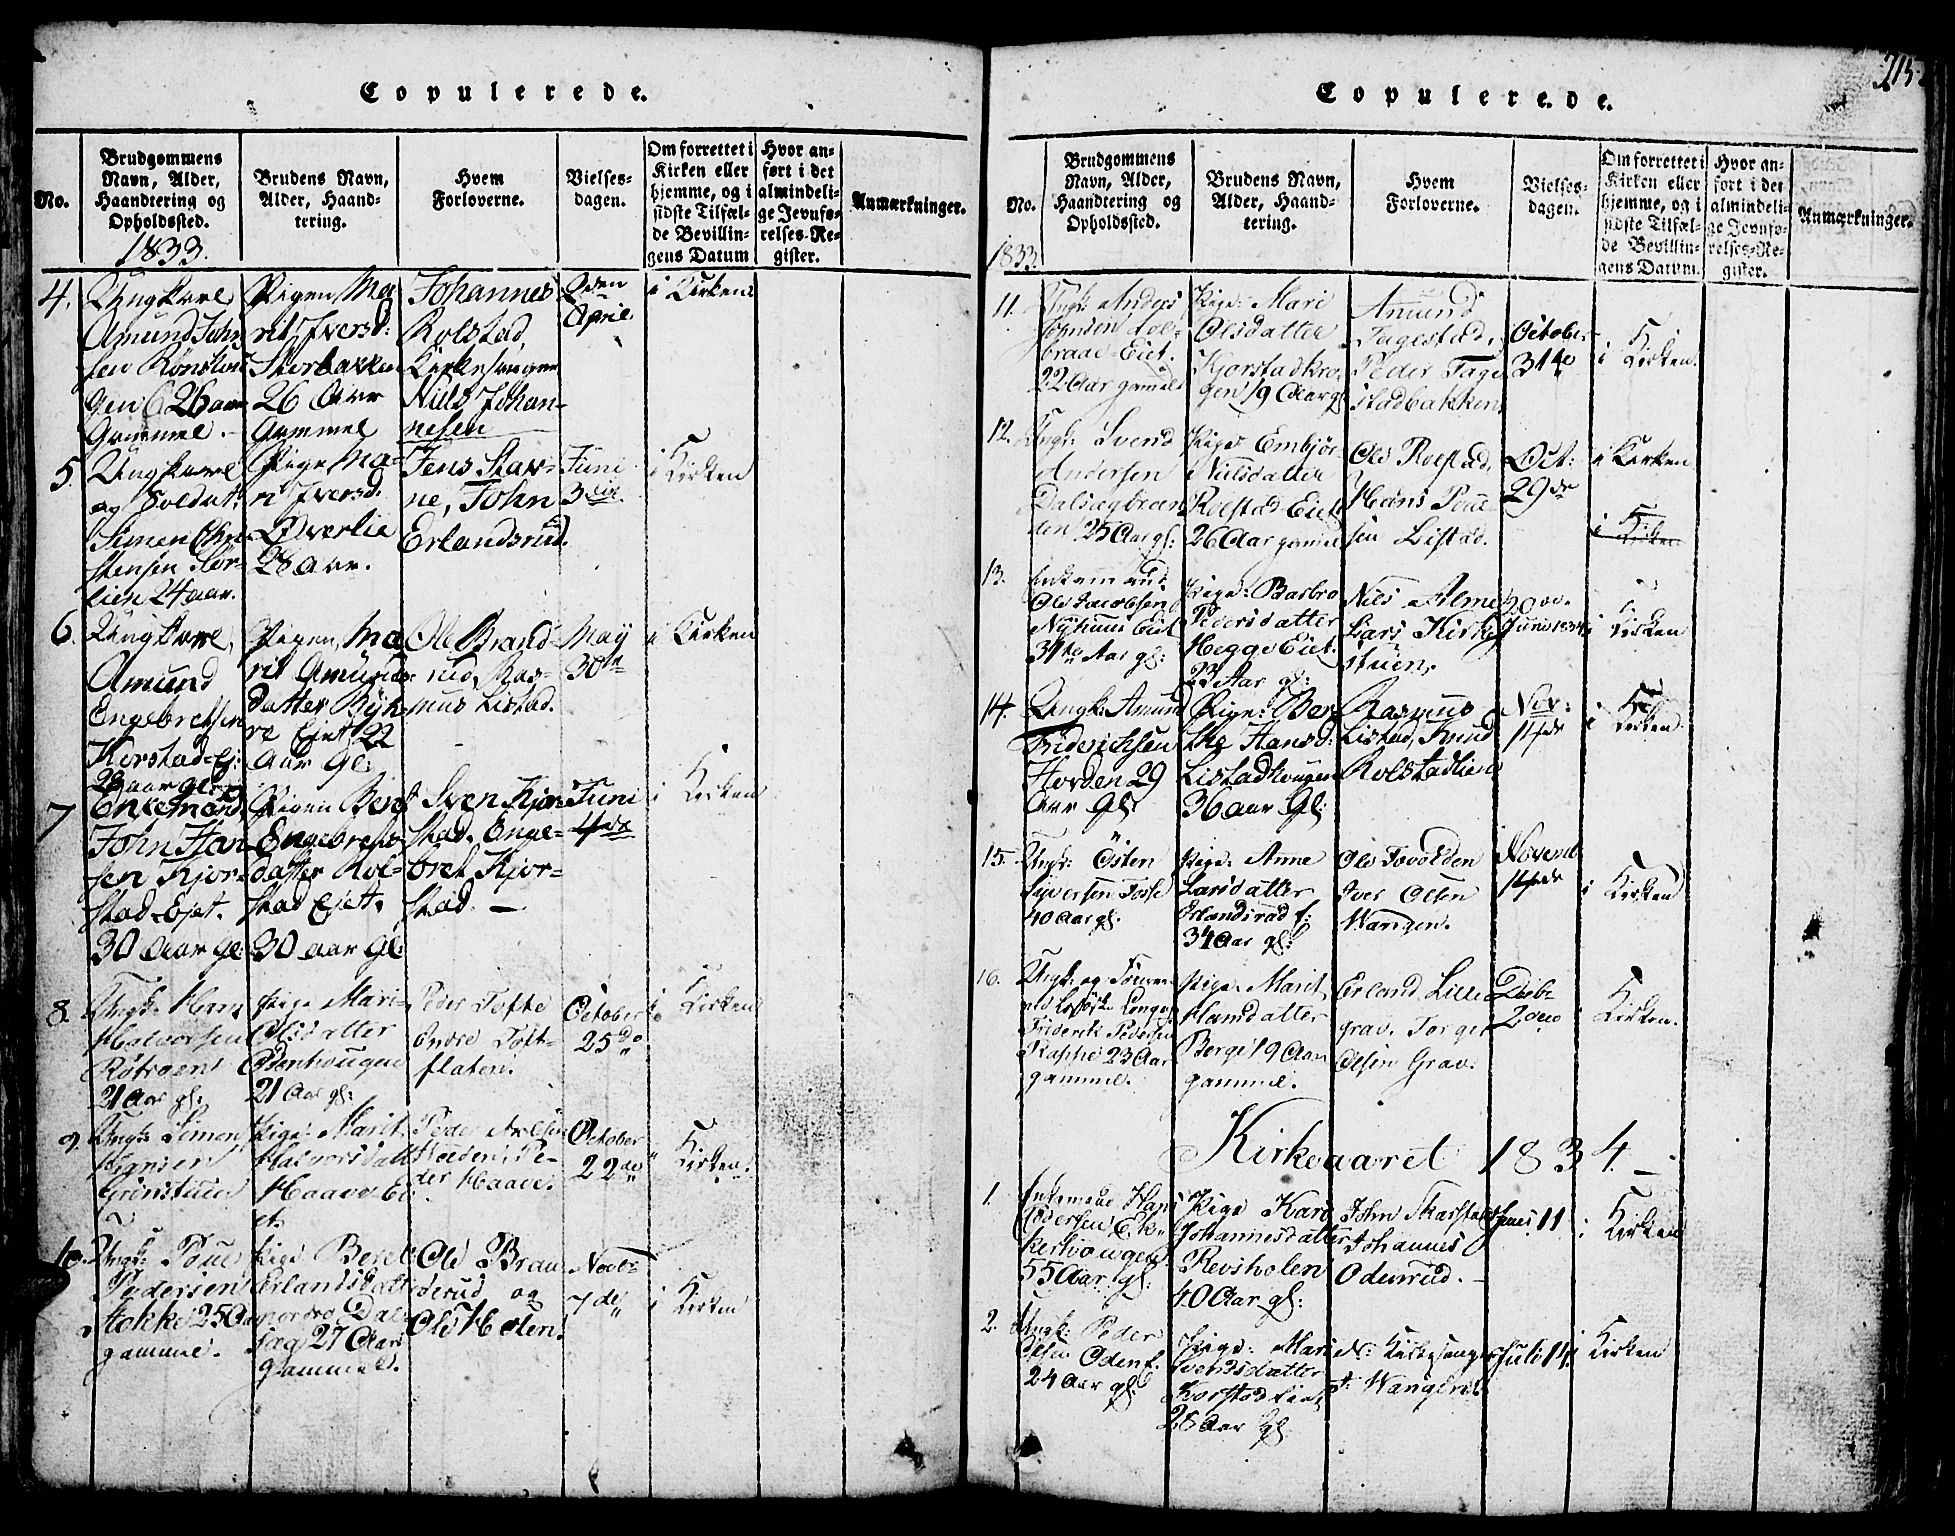 Copulerede.
No.
Brudgommens
Navn, Alder,
Haandtering og
Opholdssted.
1833.
Brudens Navn,
Alder, Haand-
tering.
Hvem
Forloverne.
Vielses-
dagen.
Om forrettet i
Kirken eller
hjemme, og i
sidste Tilfæl-
de Bevillin-
gens Datum
Hvor an-
ført i det
almindeli-
ge Jevnfø-
relses-Re-
gister.
Anmærkninger.
4.
Ungkarl
Amund John
sen
Gen 26 aar
Gammel.
Pigen Ma
rit Iversd:
Storbakken
26 Aar
Gammel
Johannes
Rolstad,
Kirkesanger
Nils Johan-
nesen
2den
April
i Kirken
5.
Ungkarl
og Soldat
Simen Chri
stensen Stor-
lien 24 aar.
Pige Ma-
rit Iversd.
Øverlie
28 Aar.
Jens Stav-
ne, John
Erlandsrud.
Juni
3die
i Kirken
6.
Ungkarl
Amund
Engebretsen
Korstad Ej:
28 aar gl:
Pigen Ma
rit Amunds
datter
re Ejet 22
Aar Gl:
Ole Brand-
rud, Ras-
mus Listad.
May
30te
i Kirken
7
Enkemand
John Han
sen Kjor-
stad-Ejet.
30 Aar gl:
Pigen Berit
Engebrets-
datter Rol-
stad Ejet.
30 aar Gl:
Sven Kjør-
stad. Enge-
bret Kjor-
stad.
Juni
4de
i Kirken
8.
Ungk: Hans
Halvorsen
21 Aar gl:
Pige Mari
Olsdatter
Odenhougen
21 Aar gl:
Peder Tofte
Endre Toft-
flaten.
October
25de
i Kirken
9.
Ungk: Simen
Hansen
Grinstuen
Pige: Marit
Halvorsdatt
Haave Ei
et.
Peder
Hoeden, Pe-
der Haave.
October
22de
i Kirken.
10.
Ungk: Poul
Pedersen
Stokke 25 Aar
gammel.
Pige Beret
Erlandsdatt
nordre Dal
sæg 27 Aar
gammel.
Ole Bran
derud og
Ole Holen.
Novbr
7de
i Kirken
Copulerede.
215.
No.
1833.
Brudgommens
Navn, Alder,
Haandtering og
Opholdssted.
Brudens Navn,
Alder, Haand-
tering.
Hvem
Forloverne.
Vielses-
dagen.
Om forrettet i
Kirken eller
hjemme, og i
sidste Tilfæl-
de Bevillin-
gens Datum.
Hvor an-
ført i det
almindeli-
ge Jevnfø-
relses-Re-
gister.
Anmærkninger.
11.
Ungk: Anders
Johnsen
braae-Eiet.
22 Aar gammel
Pige: Mari
Olsdatter
Kjorstadkro-
gen 19 Aar gl
Amund
Tagestad,
Peder Tage
stadbakken
October
31te
i Kirken.
12.
Ungk: Svend
Andersen
Dalsægbraen
den 25 Aar gl:
Pige Embjør
Nielsdatter
Rolstad Eiet
26 Aar gammel
Ole Rolstad,
Hans Poul
sen Listad.
Oct:
29de
i Kirken
i Kirken
13.
Enkemand
Ole Jacobsen
Nyhuus Eiet
34te Aar gl:
Pige: Barbro
Pedersdatter
Hegge Eiet.
23 Aar gl:
Nils Alme
Lars Kirke
stuen,
Juni 1834
i Kirken
14.
Ungk: Amund
Friderichsen
Horden 29
Aar Gl:
Pige: Ber
the Hansd:
Listadhougen
36 aar Gl:
Rasmus
Listad, Knud
Rolstadlien
Nov:
14de
i Kirken
15.
Ungk: Østen
Syversen Fosse
40 Aar gl.
Pige: Anne
Larsdatter
Erlandsrud E:
34 Aar gl:
Ole Tovolden
Iver Olsen
Wangen.
Novemb
14de
i Kirken
16.
Ungk: og
Friderik Pedersen
23 Aar
gammel.
Pige Marit
Hansdatter
Berge 19 Aar
gammel.
Erland Lille
grav. Torger
Olsen Grav.
Decbr
2den
i Kirken.
Kirkeaaret 1834.
1.
Enkemand Hans
Pedersen Ek-
kerhougen
55 Aar gl:
Pige Kari
Johannesdatter
Revsholen
40 Aar gl:
John Skarstad
Johannes
Odenrud.
11
i Kirken
2.
Ungk: Peder
Olsen Oden E.
24 Aar gl:
Pige: Mari
Svendsdatter
Korstad Eiet
28 Aar gl.
N: Kirkesanger
Wangen
Juli 14
i Kirken